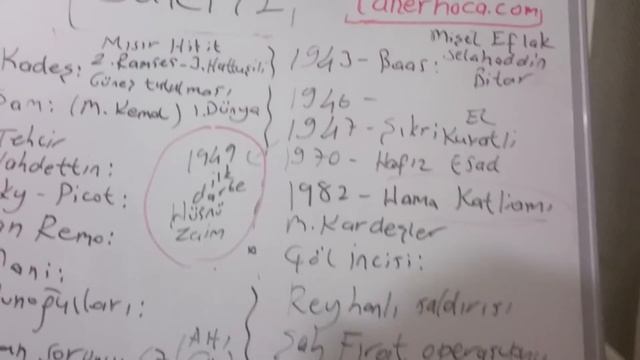 tanerhoca.com
Mısır Hitit
Kadeş: 2. Ramses - 3. Hattuşili
Güneş tutulması
Şam: (M. Kemal) 1. Dünya
Tehcir
Vahdettin:
ky-Picot:
on Remo:
1949
ilk
darbe
Hüsnü
Zaim
Mişel Eflak
1943 - Baas: Selahaddin
Bitar
1946 -
El
1947 - Şükri Kuvatli
1970 - Hafız Esad
1982 - Hama Katliamı
M. Kardeşler
Çöl incisi:
Reyhanlı saldırısı
Şah Fırat